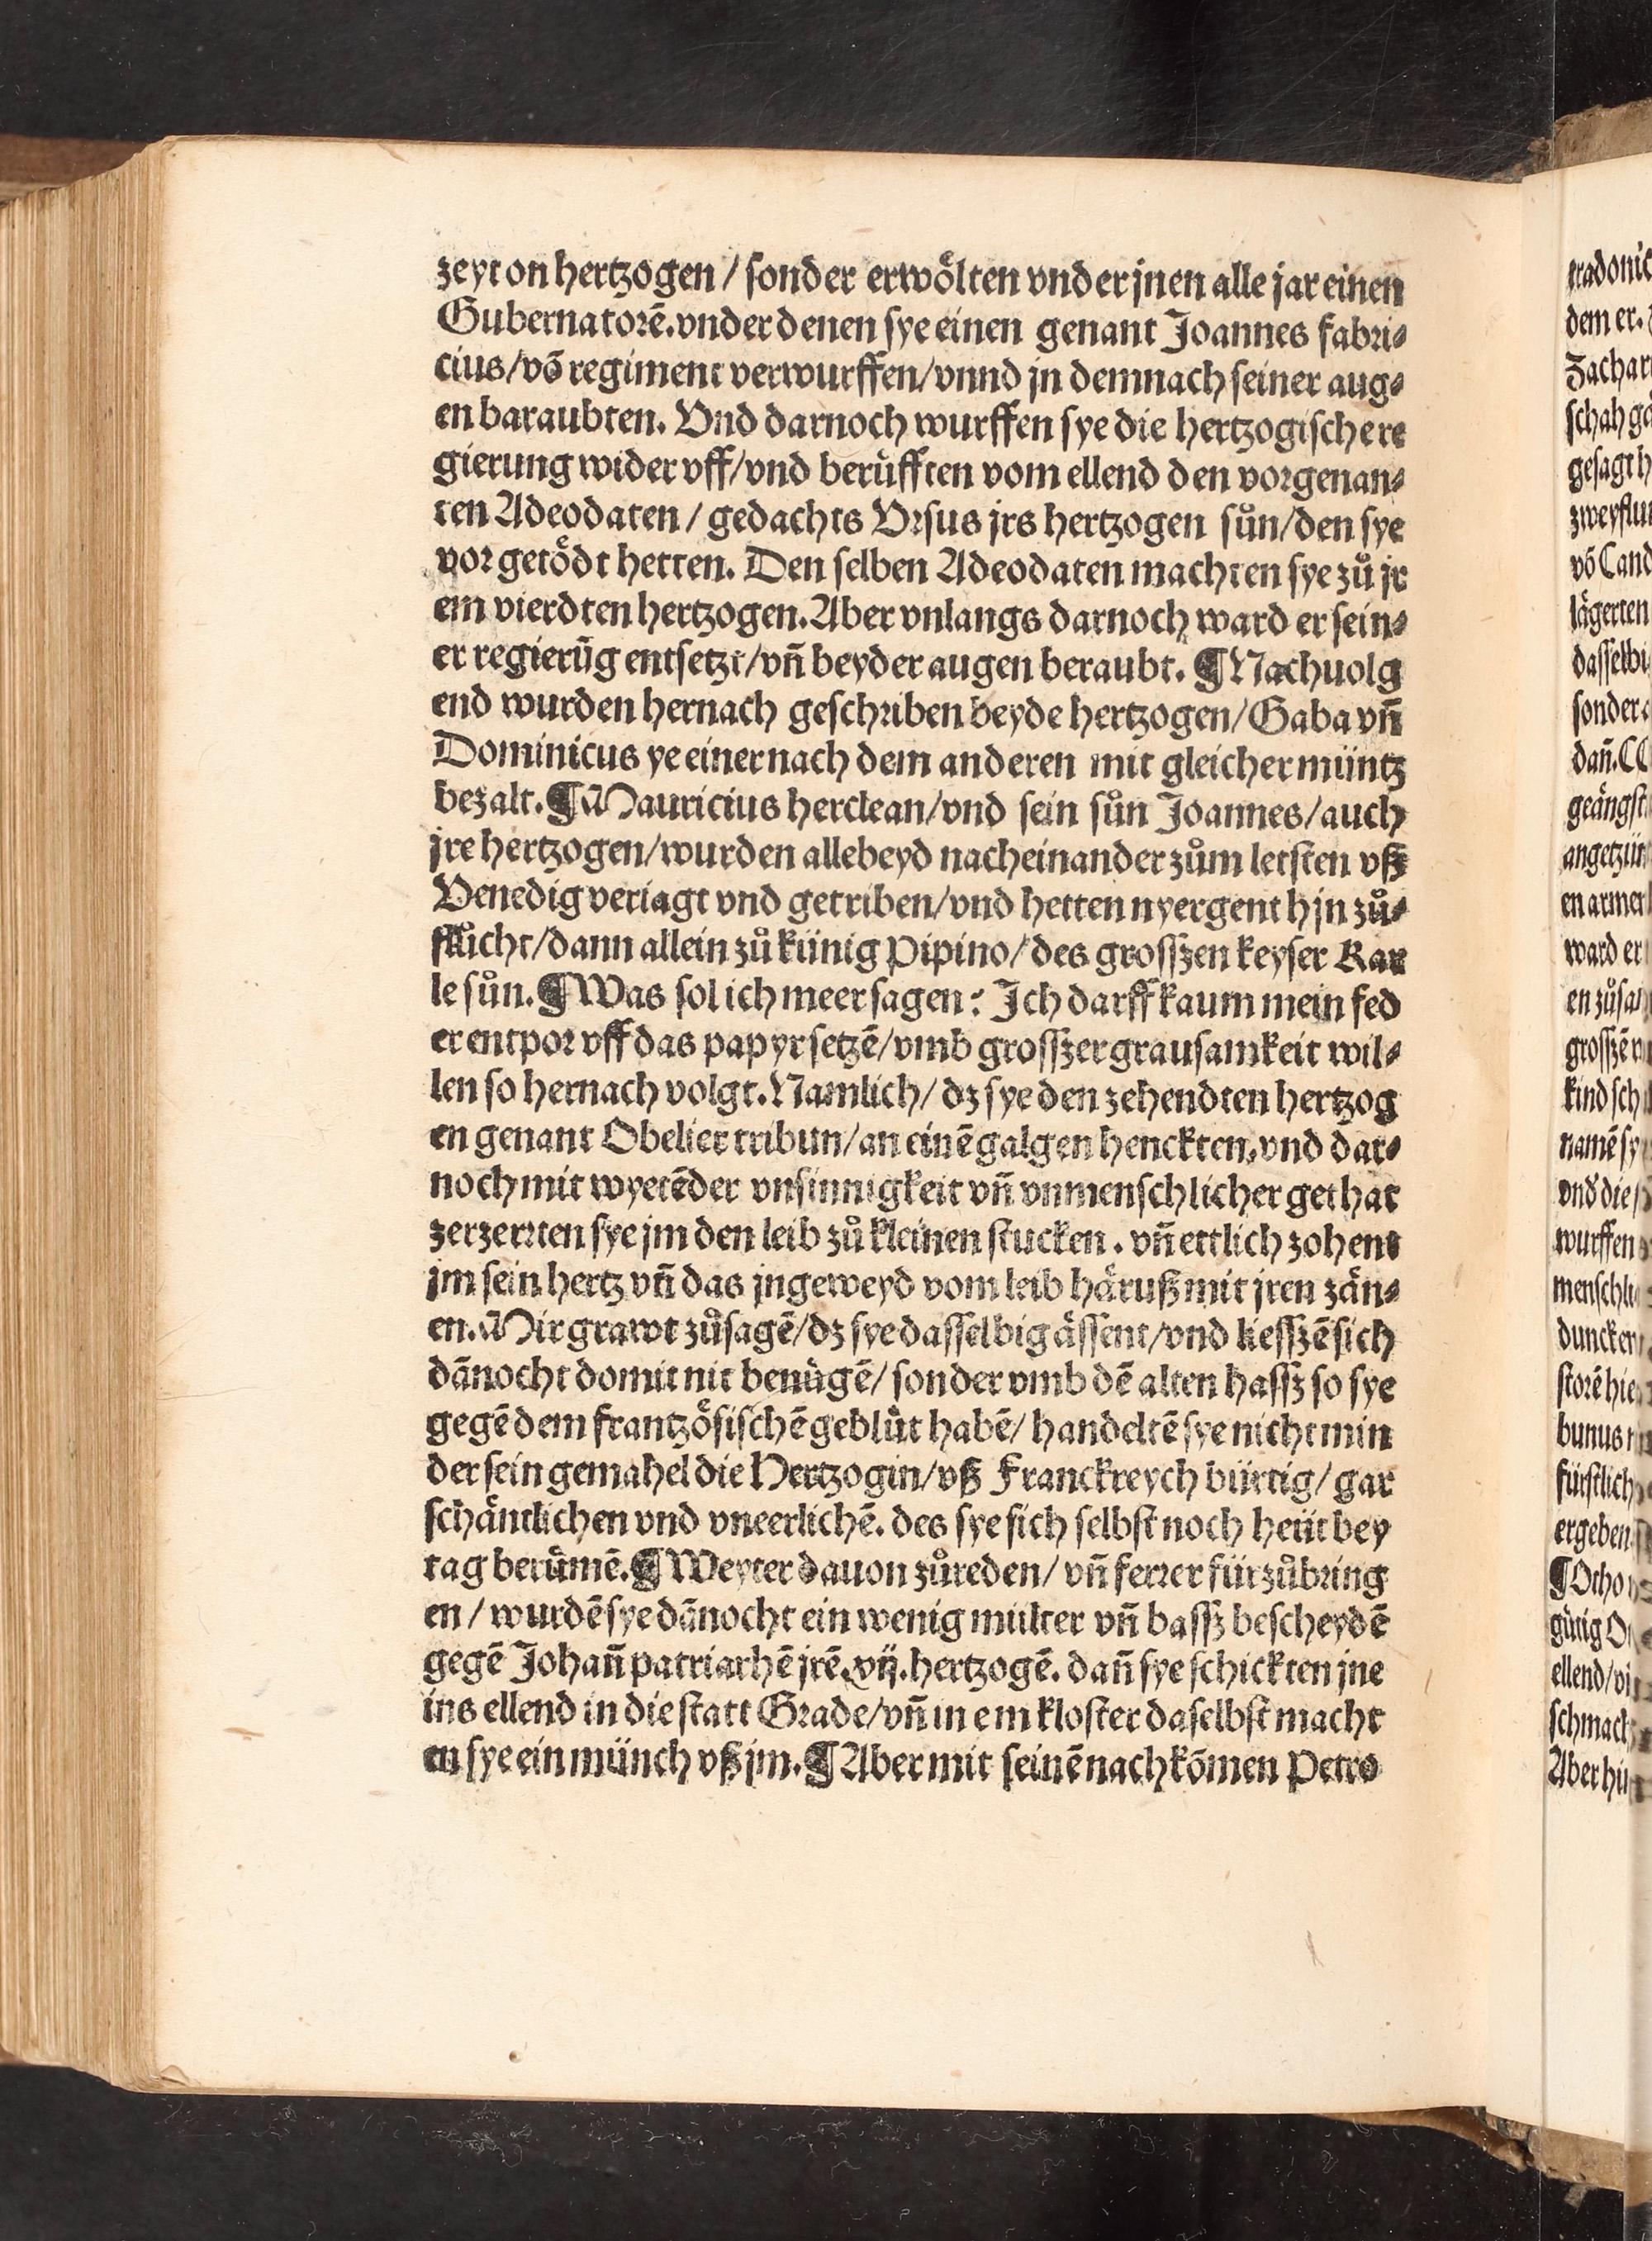 zeyt on hertzogen / sonder erwoͤlten vnder jnen alle jar einen
Gubernatorē. vnder denen sye einen genant Joannes fabri⸗
cius/võ regiment verwurffen/vnnd jn demnach seiner aug⸗
en baraubten. Vnd darnoch wurffen sye die hertzogische re
gierung wider vff/vnd beruͤfften vom ellend den vorgenan⸗
ten Adeodaten / gedachts Vrsus jrs hertzogen suͦn/den sye
vor getoͤdt hetten. Den selben Adeodaten machten sye zuͦ jr
em vierdten hertzogen. Aber vnlangs darnoch ward er sein⸗
er regierũg entsetzt/vñ beyder augen beraubt. ¶ Nachuolg
end wurden hernach geschriben beyde hertzogen/Gaba vñ
Dominicus ye einer nach dem anderen mit gleicher müntz
bezalt. ¶ Mauricius herclean/vnd sein suͦn Joannes/auch
jre hertzogen/wurden allebeyd nacheinander zuͦm letsten vß
Venedig veriagt vnd getriben/vnd hetten nyergent hjn zuͦ⸗
fluͦcht/dann allein zuͦ künig Pipino/des grosszen keyser Kar
le suͦn. ¶ Was sol ich meer sagen: Jch darff kaum mein fed
er entpor vff das papyr setzē/vmb grosszer grausamkeit wil⸗
len so hernach volgt. Namlich/ dz sye den zehendten hertzog
en genant Obelier tribun/an einē galgen henckten, vnd dar⸗
noch mit wyetēder vnsinnigkeit vñ vnmenschlicher gethat
zerzerrten sye jm den leib zuͦ kleinen stucken. vñ ettlich zohent
jm sein hertz vñ das jngeweyd vom leib haͤruß mit jren zaͤn⸗
en. Mir grawt zuͦsagē/dz sye dasselbig aͤssent/vnd liesszē sich
dānocht domit nit benuͤgē/ sonder vmb dē alten hassz so sye
gegē dem frantzoͤsischē gebluͤt habē/ handeltē sye nicht min
der sein gemahel die Hertzogin/vß Franckreych bürtig/ gar
schaͤntlichen vnd vneerlichē. des sye sich selbst noch heüt bey
tag beruͤmē. ¶ Weyter dauon zuͦreden/ vñ ferrer fürzuͦbring
en / wurdē sye dānocht ein wenig milter vñ bassz bescheydē
gegē Johañ patriarhē jrē. xvij. hertzogē. dañ sye schickten jne
ins ellend in die statt Grade/vñ in eim kloster daselbst macht
en sye ein münch vß jm. ¶ Aber mit seinē nachkōmen Petro